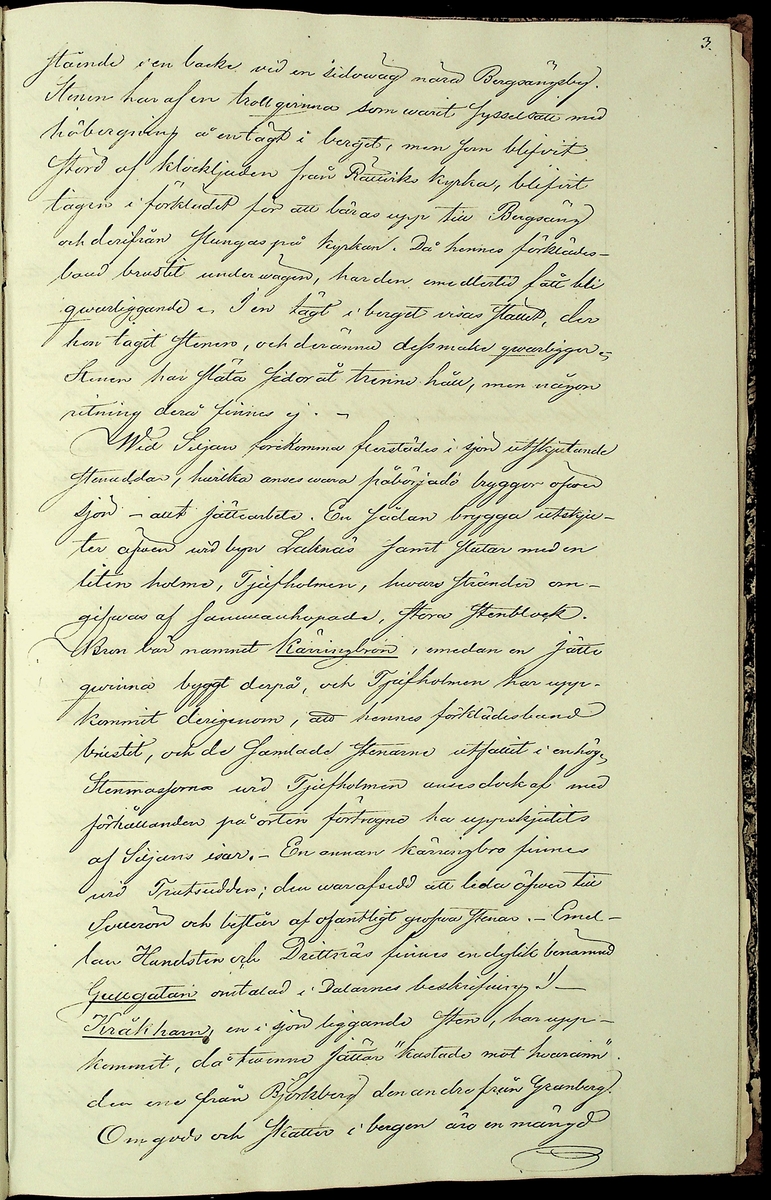 3.
stående i en backe vid en sidowäg nära Bergsängsby.
Stenen har af en trollqwinna som warit sysselsatt med
höbergning å en tägt i berget, men som blifvit
störd af klockljuden från Rättwiks kyrka, blifvit
tagen i förklädet för att bäras upp till Bergsäng
och derifrån slungas på kyrkan. Då hennes förklädes-
band brustit under wägen, har den emedlertid fått bli
qwarliggande. I en tägt i berget visas stället, der
hon tagit stenen, och der ännu dess make qwarligger.
Stenen har släta sidor åt trenne håll, men någon
ritning derå finnes ej. –
Wid Siljan förekomma flerstädes i sjön utskjutande
stenuddar, hvilka anses wara påbörjade bryggor öfwer
sjön – allt jättearbete. En sådan brygga utskju-
ter äfwen wid byn Laknäs samt slutar med en
liten holme, Tjufholmen, hwars stränder om-
gifwas af sammanhopade, stora stenblock.
Bron bär namnet Käringbron, emedan en jätte
qwinna byggt derpå, och Tjufholmen har upp-
kommit derigenom, att hennes förklädesband
brustit, och de samlade stenarne utfallit i en hög.
Stenmassorna wid Tjufholmen anses dock af med
förhållanden på orten förtrogne ha uppskjutits
af Siljans isar. – En annan käringbro finnes
wid Trutsudden; den war afsedd att leda öfwer till
Sollerön och består af ofantligt grofwa stenar. – Emel-
lan Hundsten och Drittnäs finnes en dylik benämnd
Gullgatan omtalad i Dalarnes beskrifning! –
Kråkharn, en i sjön liggande sten, har upp-
kommit, då twenne jättar "kastade mot hwarann".
den ene från Björkberg den andre från Granberg.
Om gods och skatter i bergen äro en mängd